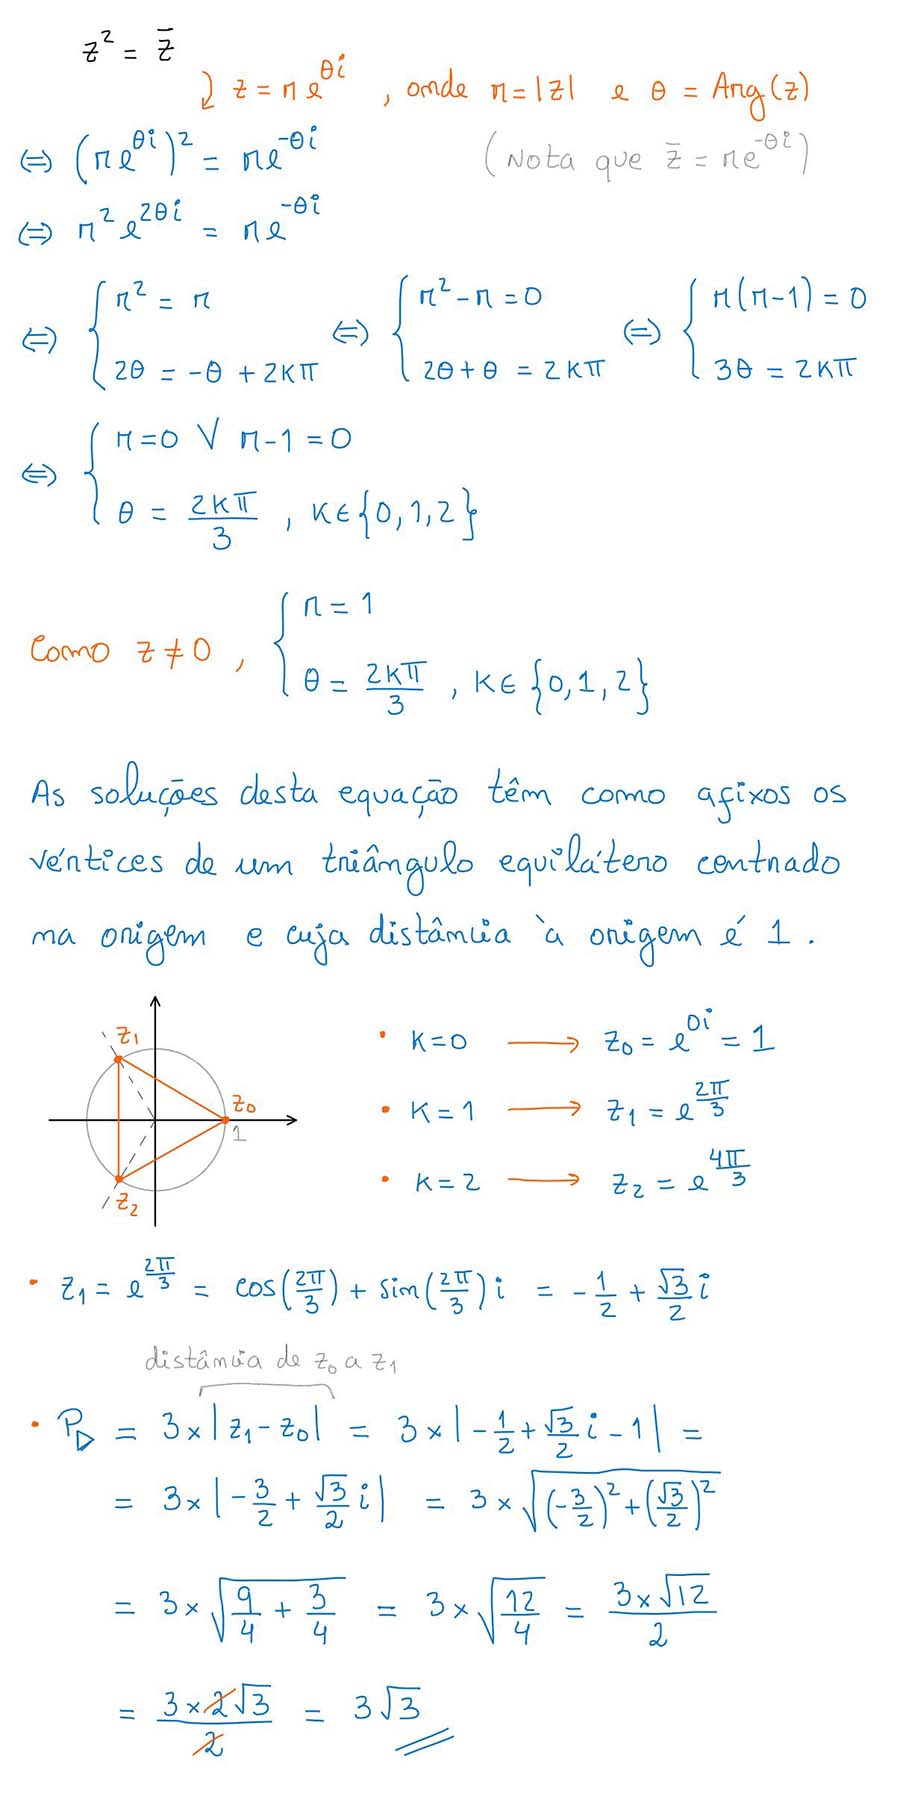 z² = z̄
z = re^{θi} , onde r = |z| e θ = Arg(z)
⇔ (re^{θi})² = re^{-θi} (Nota que z̄ = re^{-θi})
⇔ r² e^{2θi} = re^{-θi}
⇔ { r² = r ; 2θ = -θ + 2kπ ⇔ { r² - r = 0 ; 2θ + θ = 2kπ ⇔ { r(r-1) = 0 ; 3θ = 2kπ
⇔ { r=0 ∨ r-1 = 0 ; θ = 2kπ/3 , k∈{0,1,2}
Como z ≠ 0 , { r = 1 ; θ = 2kπ/3 , k∈{0,1,2}
As soluções desta equação têm como afixos os
vértices de um triângulo equilátero centrado
na origem e cuja distância à origem é 1 .
z₁
z₀
1
z₂
• k=0 → z₀ = e^{0i} = 1
• k=1 → z₁ = e^{2π/3}
• k=2 → z₂ = e^{4π/3}
• z₁ = e^{2π/3} = cos(2π/3) + sin(2π/3) i = -1/2 + √3/2 i
distância de z₀ a z₁
• P▷ = 3×|z₁ - z₀| = 3×|-1/2 + √3/2 i - 1| =
= 3×|-3/2 + √3/2 i| = 3×√((-3/2)² + (√3/2)²)
= 3×√(9/4 + 3/4) = 3×√(12/4) = 3×√12/2
= 3×2√3/2 = 3√3